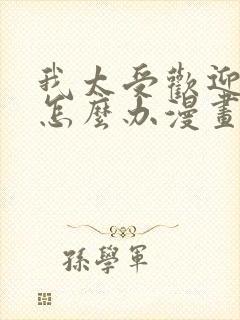 我太受歡迎
怎麼办漫畫
孫學軍